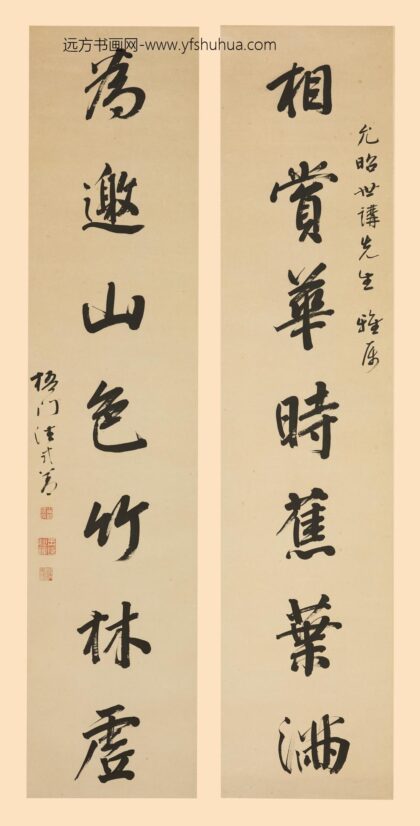 远方书画网-www.yfshuhua.com
允昭世講先生 雅屬
相賞華時蕉葉滿
為邀山色竹林虛
梧门法式善